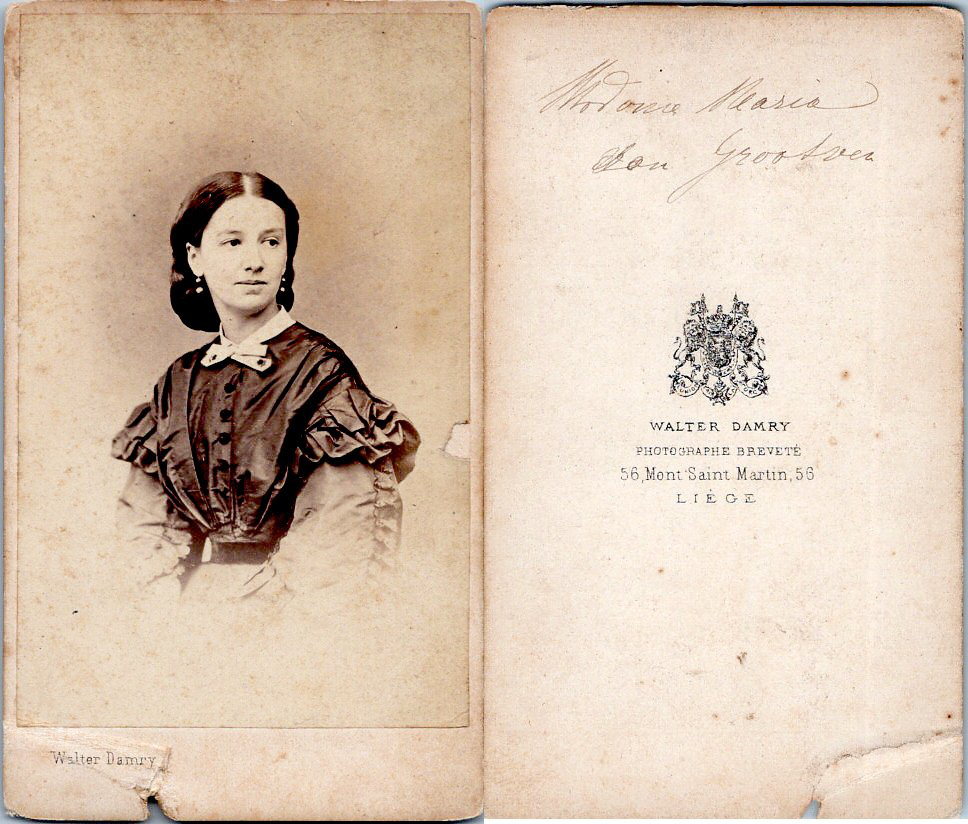 Walter Damry
Madame Maria
Grootven
WALTER DAMRY
PHOTOGRAPHE BREVETÉ
56, Mont Saint Martin, 56
LIÈGE